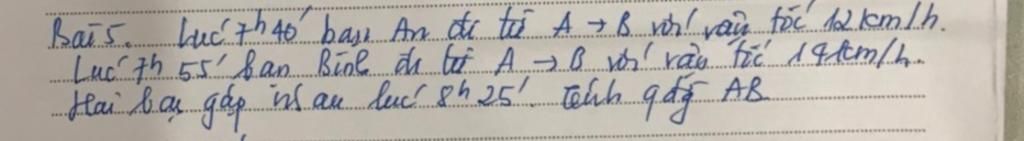 Bài 5. Lúc 7h 40' bạn An đi từ A → B với vận tốc 12 km/h.
Lúc 7h 55' bạn Bình đi từ A → B với vận tốc 14km/h.
Hai bạn gặp nhau lúc 8h 25'. Tính qđg AB